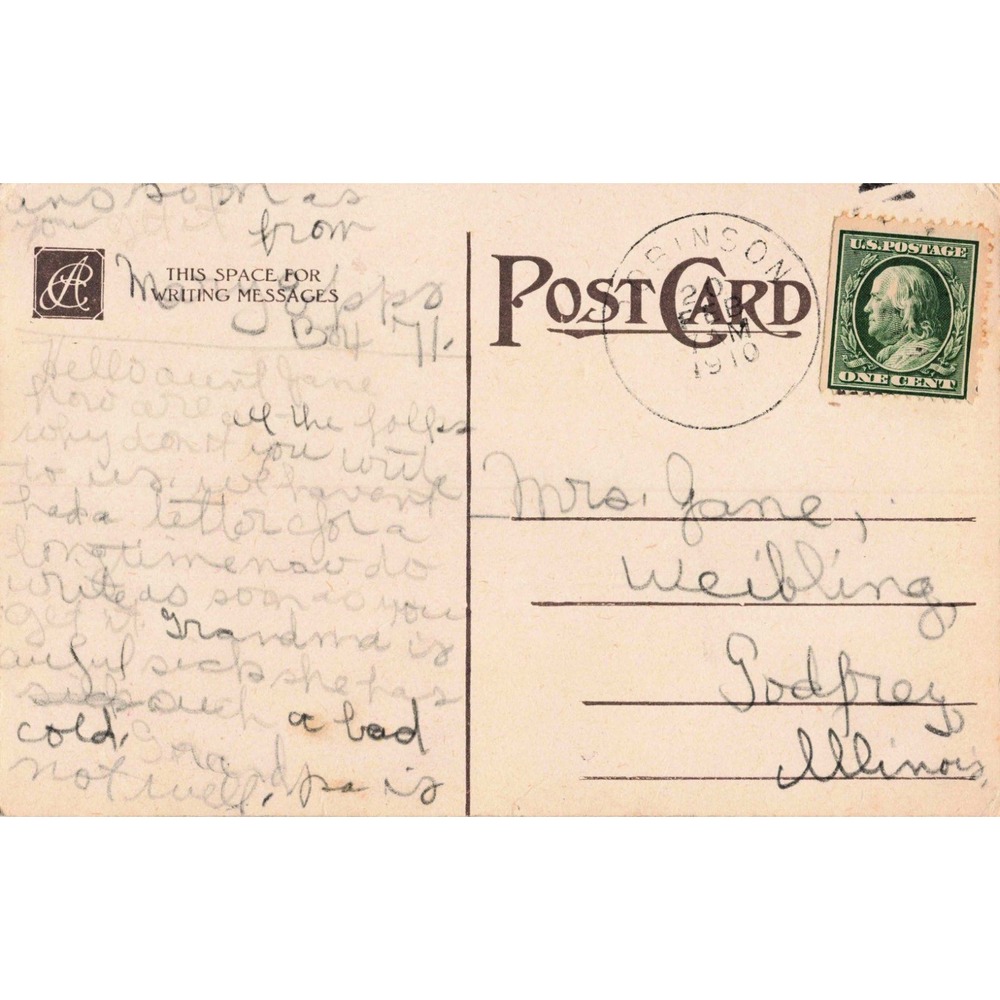 ans soon as
you get it
from
THIS SPACE FOR
WRITING MESSAGES
Mary
Box 71.
Hello aunt Jane
how are all the folks
why don't you write
to us. we havent
had a letter for a
long time now do
write as soon as you
get it Grandma is
awful sick she has
such a bad
cold. Grand pa is
not well.
POST CARD
ROBINSON
1910
U.S. POSTAGE
ONE CENT
Mrs. Jane,
Weibling
Godfrey
Illinois,